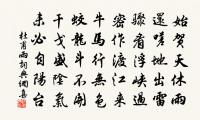 始賀天休雨
還嗟地出雷
驟看浮峽過
密作渡江來
牛馬行無色
蛟龍鬥不開
干戈盛陰氣
未必自陽台
杜甫雨詞典網集